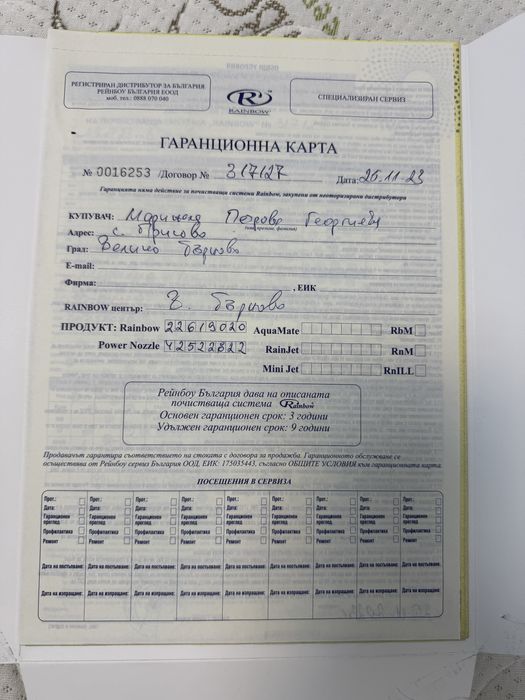 РЕГИСТРИРАН ДИСТРИБУТОР ЗА БЪЛГАРИЯ
РЕЙНБОУ БЪЛГАРИЯ ЕООД
моб. тел.: 0888 070 040
R
RAINBOW
СПЕЦИАЛИЗИРАН СЕРВИЗ
ГАРАНЦИОННА КАРТА
№ 0016253 /Договор № 317127 Дата: 26.11.23
Гаранцията няма действие за почистващи системи Rainbow, закупени от неоторизирани дистрибутори
КУПУВАЧ: Петрова Георгиева
(име, презиме, фамилия)
Адрес: с. Присово
Град: Велико Търново
E-mail:
Фирма: , ЕИК
RAINBOW център: В. Търново
ПРОДУКТ: Rainbow 22619020 AquaMate RbM
Power Nozzle 42522822 RainJet RnM
Mini Jet RnILL
Рейнбоу България дава на описаната
почистваща система Rainbow
Основен гаранционен срок: 3 години
Удължен гаранционен срок: 9 години
Продавачът гарантира съответствието на стоката с договора за продажба. Гаранционното обслужване се
осъществява от Рейнбоу сервиз България ООД, ЕИК: 175035443, съгласно ОБЩИТЕ УСЛОВИЯ към гаранционната карта.
ПОСЕЩЕНИЯ В СЕРВИЗА
Прот.: Прот.: Прот.: Прот.: Прот.: Прот.: Прот.: Прот.: Прот.:
Дата: Дата: Дата: Дата: Дата: Дата: Дата: Дата: Дата:
Гаранционен Гаранционен Гаранционен Гаранционен Гаранционен Гаранционен Гаранционен Гаранционен Гаранционен
преглед преглед преглед преглед преглед преглед преглед преглед преглед
Профилактика Профилактика Профилактика Профилактика Профилактика Профилактика Профилактика Профилактика Профилактика
Ремонт Ремонт Ремонт Ремонт Ремонт Ремонт Ремонт Ремонт Ремонт
Дата на постъпване: Дата на постъпване: Дата на постъпване: Дата на постъпване: Дата на постъпване: Дата на постъпване: Дата на постъпване: Дата на постъпване: Дата на постъпване:
Дата на изпращане: Дата на изпращане: Дата на изпращане: Дата на изпращане: Дата на изпращане: Дата на изпращане: Дата на изпращане: Дата на изпращане: Дата на изпращане: